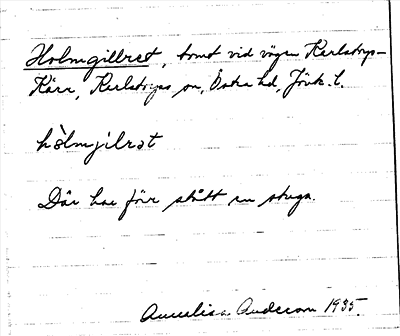 Holmgillret, tomt vid vägen Karlstorp-
Kärr, Karlstorps sn, Östra hd, Jönk. l.
hòlmjilrət
Där har förr stått en stuga.
Annalisa Anderson 1935.